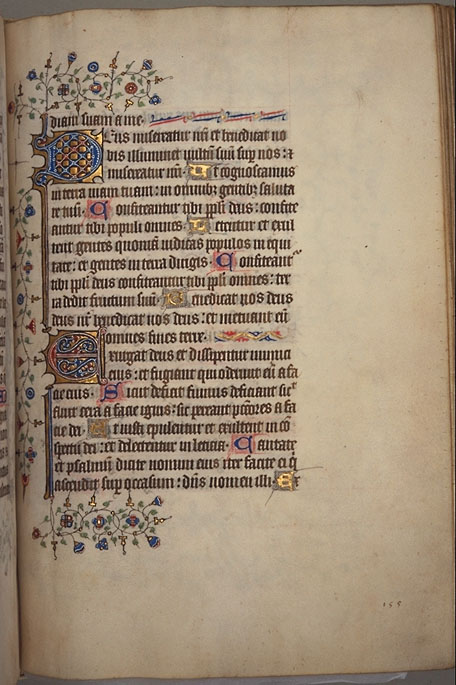 diam suam a me.
Deus misereatur nrī et benedicat no
bis illuminet vultū suū sup nos: ⁊
misereatur nrī. Ut cognoscamus
in terra viam tuam: in omnibȝ gentibȝ saluta
re tuū. Confiteantur tibi ppli deus: confite
antur tibi populi omnes. Letentur et exul
tent gentes quoniā iudicas populos in equi
tate: et gentes in terra dirigis. Confiteant
tibi ppli deus confiteantur tibi ppli omnes: ter
ra dedit fructum suū. Benedicat nos deus
deus nr̄ benedicat nos deus: et metuant eū
omnes fines terre.
Exurgat deus et dissipentur inimici
eius: et fugiant qui oderunt eū a fa
cie eius. Sicut deficit fumus deficiant sic
fluit cera a facie ignis: sic pereant pctōres a fa
cie dei. Et iusti epulentur et exultent in cō
spectu dei: et delectentur in leticia. Cantate
et psalmū dicite nomini eius iter facite ei q̄
ascendit sup occasum: dn̄s nomen illi. Ex
155